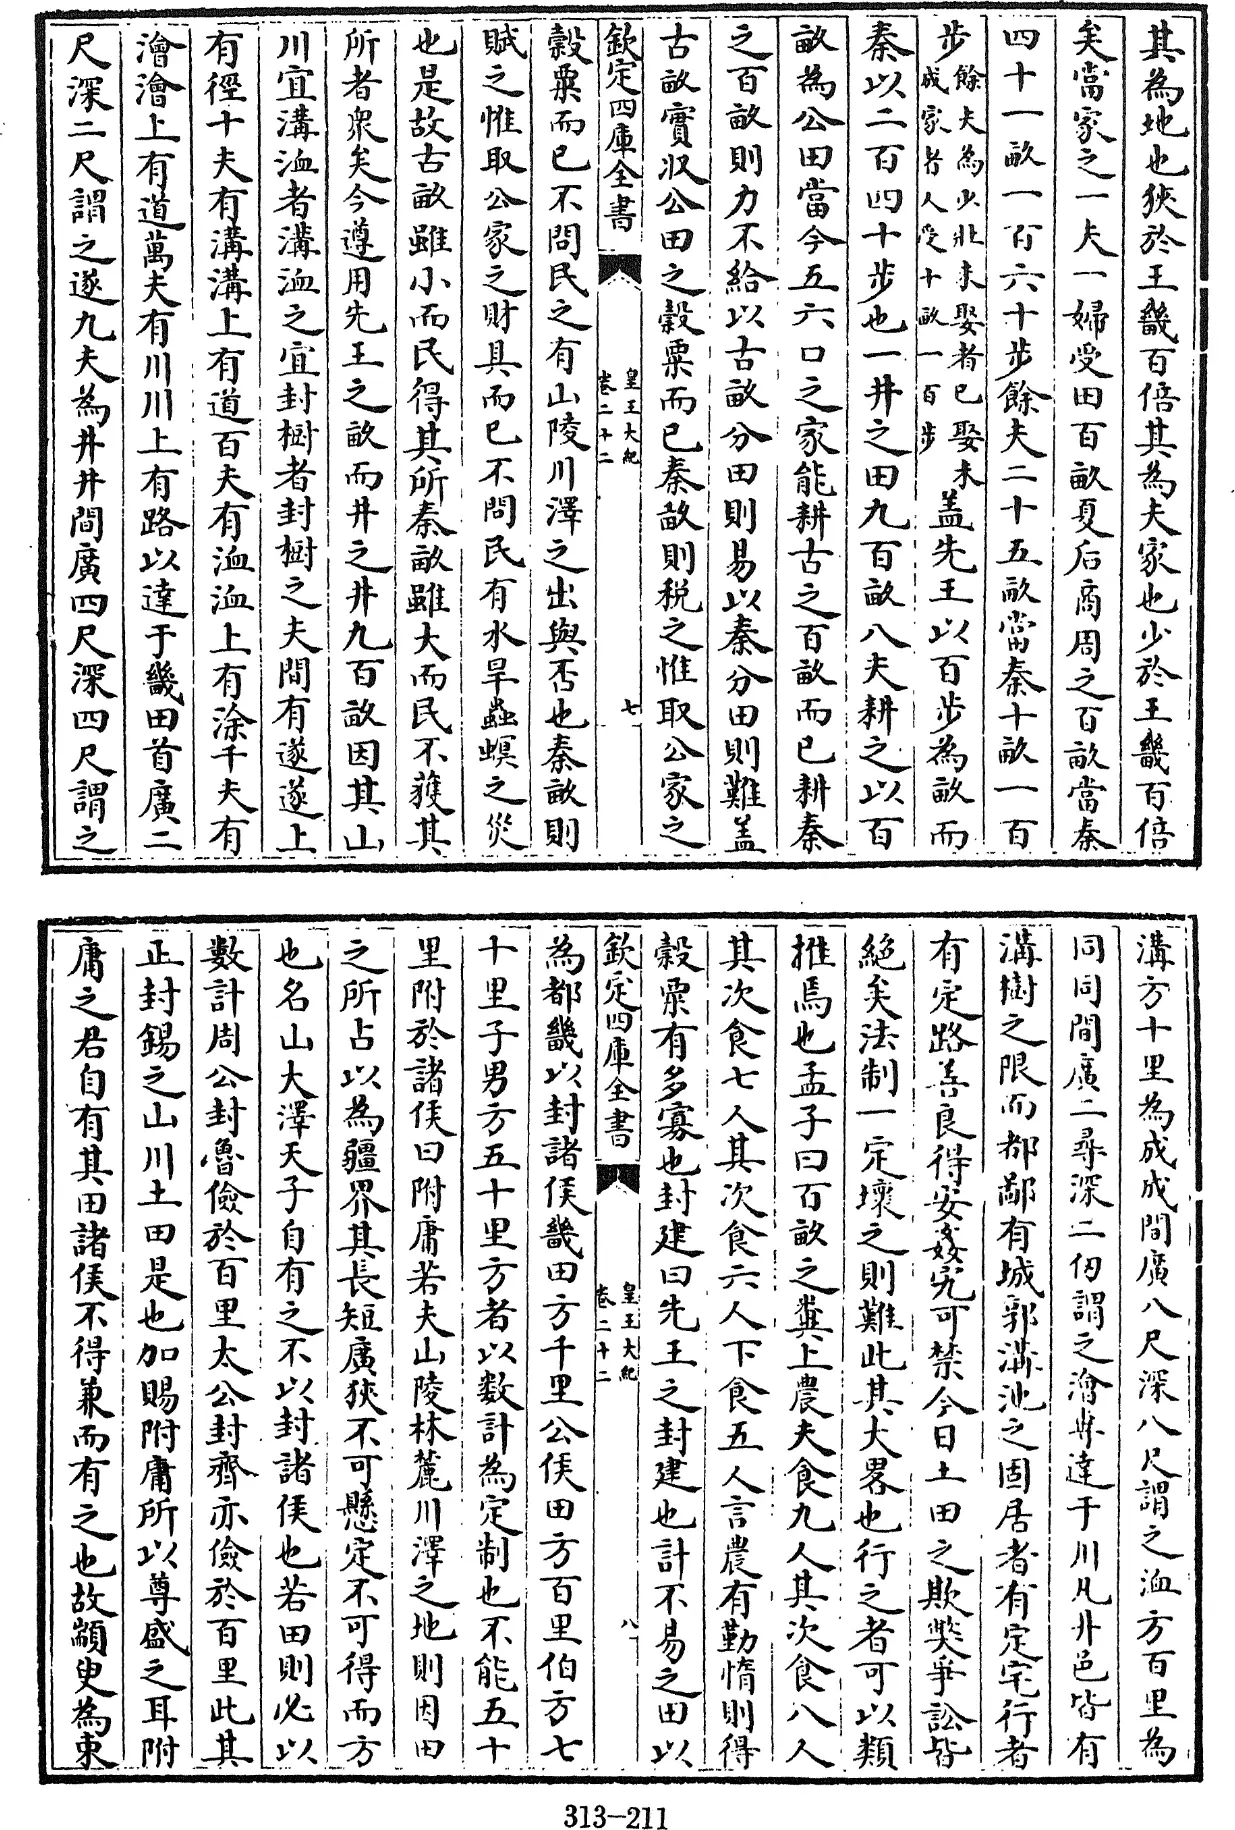 其為地也狹於王畿百倍其為夫家也少於王畿百倍
矣當家之一夫一婦受田百畝夏后商周之百畝當秦
四十一畝一百六十步餘夫二十五畝當秦十畝一百
步餘夫為少壯未娶者已娶未成家者人受十畝一百步蓋先王以百步為畝而
秦以二百四十步也一井之田九百畝八夫耕之以百
畝為公田當今五六口之家能耕古之百畝而已耕秦
之百畝則力不給以古畝分田則易以秦分田則難蓋
古畝實收公田之穀粟而已秦畝則税之惟取公家之
欽定四庫全書
皇王大紀
卷二十二
七
穀粟而已不問民之有山陵川澤之出與否也秦畝則
賦之惟取公家之財具而已不問民有水旱蟲螟之災
也是故古畝雖小而民得其所秦畝雖大而民不獲其
所者衆矣今遵用先王之畝而井之井九百畝因其山
川宜溝洫者溝洫之宜封樹者封樹之夫間有遂遂上
有徑十夫有溝溝上有道百夫有洫洫上有涂千夫有
澮澮上有道萬夫有川川上有路以達于畿田首廣二
尺深二尺謂之遂九夫為井井間廣四尺深四尺謂之
溝方十里為成成間廣八尺深八尺謂之洫方百里為
同同間廣二尋深二仞謂之澮專達于川凡井邑皆有
溝樹之限而都鄙有城郭溝池之固居者有定宅行者
有定路善良得安姦宄可禁今日土田之欺弊爭訟皆
絶矣法制一定壞之則難此其大畧也行之者可以類
推焉也孟子曰百畝之糞上農夫食九人其次食八人
其次食七人其次食六人下食五人言農有勤惰則得
穀粟有多寡也封建曰先王之封建也計不易之田以
欽定四庫全書
皇王大紀
卷二十二
八
為都畿以封諸侯畿田方千里公侯田方百里伯方七
十里子男方五十里方者以数計為定制也不能五十
里附於諸侯曰附庸若夫山陵林麓川澤之地則因田
之所占以為疆界其長短廣狹不可懸定不可得而方
也名山大澤天子自有之不以封諸侯也若田則必以
數計周公封魯儉於百里太公封齊亦儉於百里此其
正封錫之山川土田是也加賜附庸所以尊盛之耳附
庸之君自有其田諸侯不得兼而有之也故顓臾為東
313-211